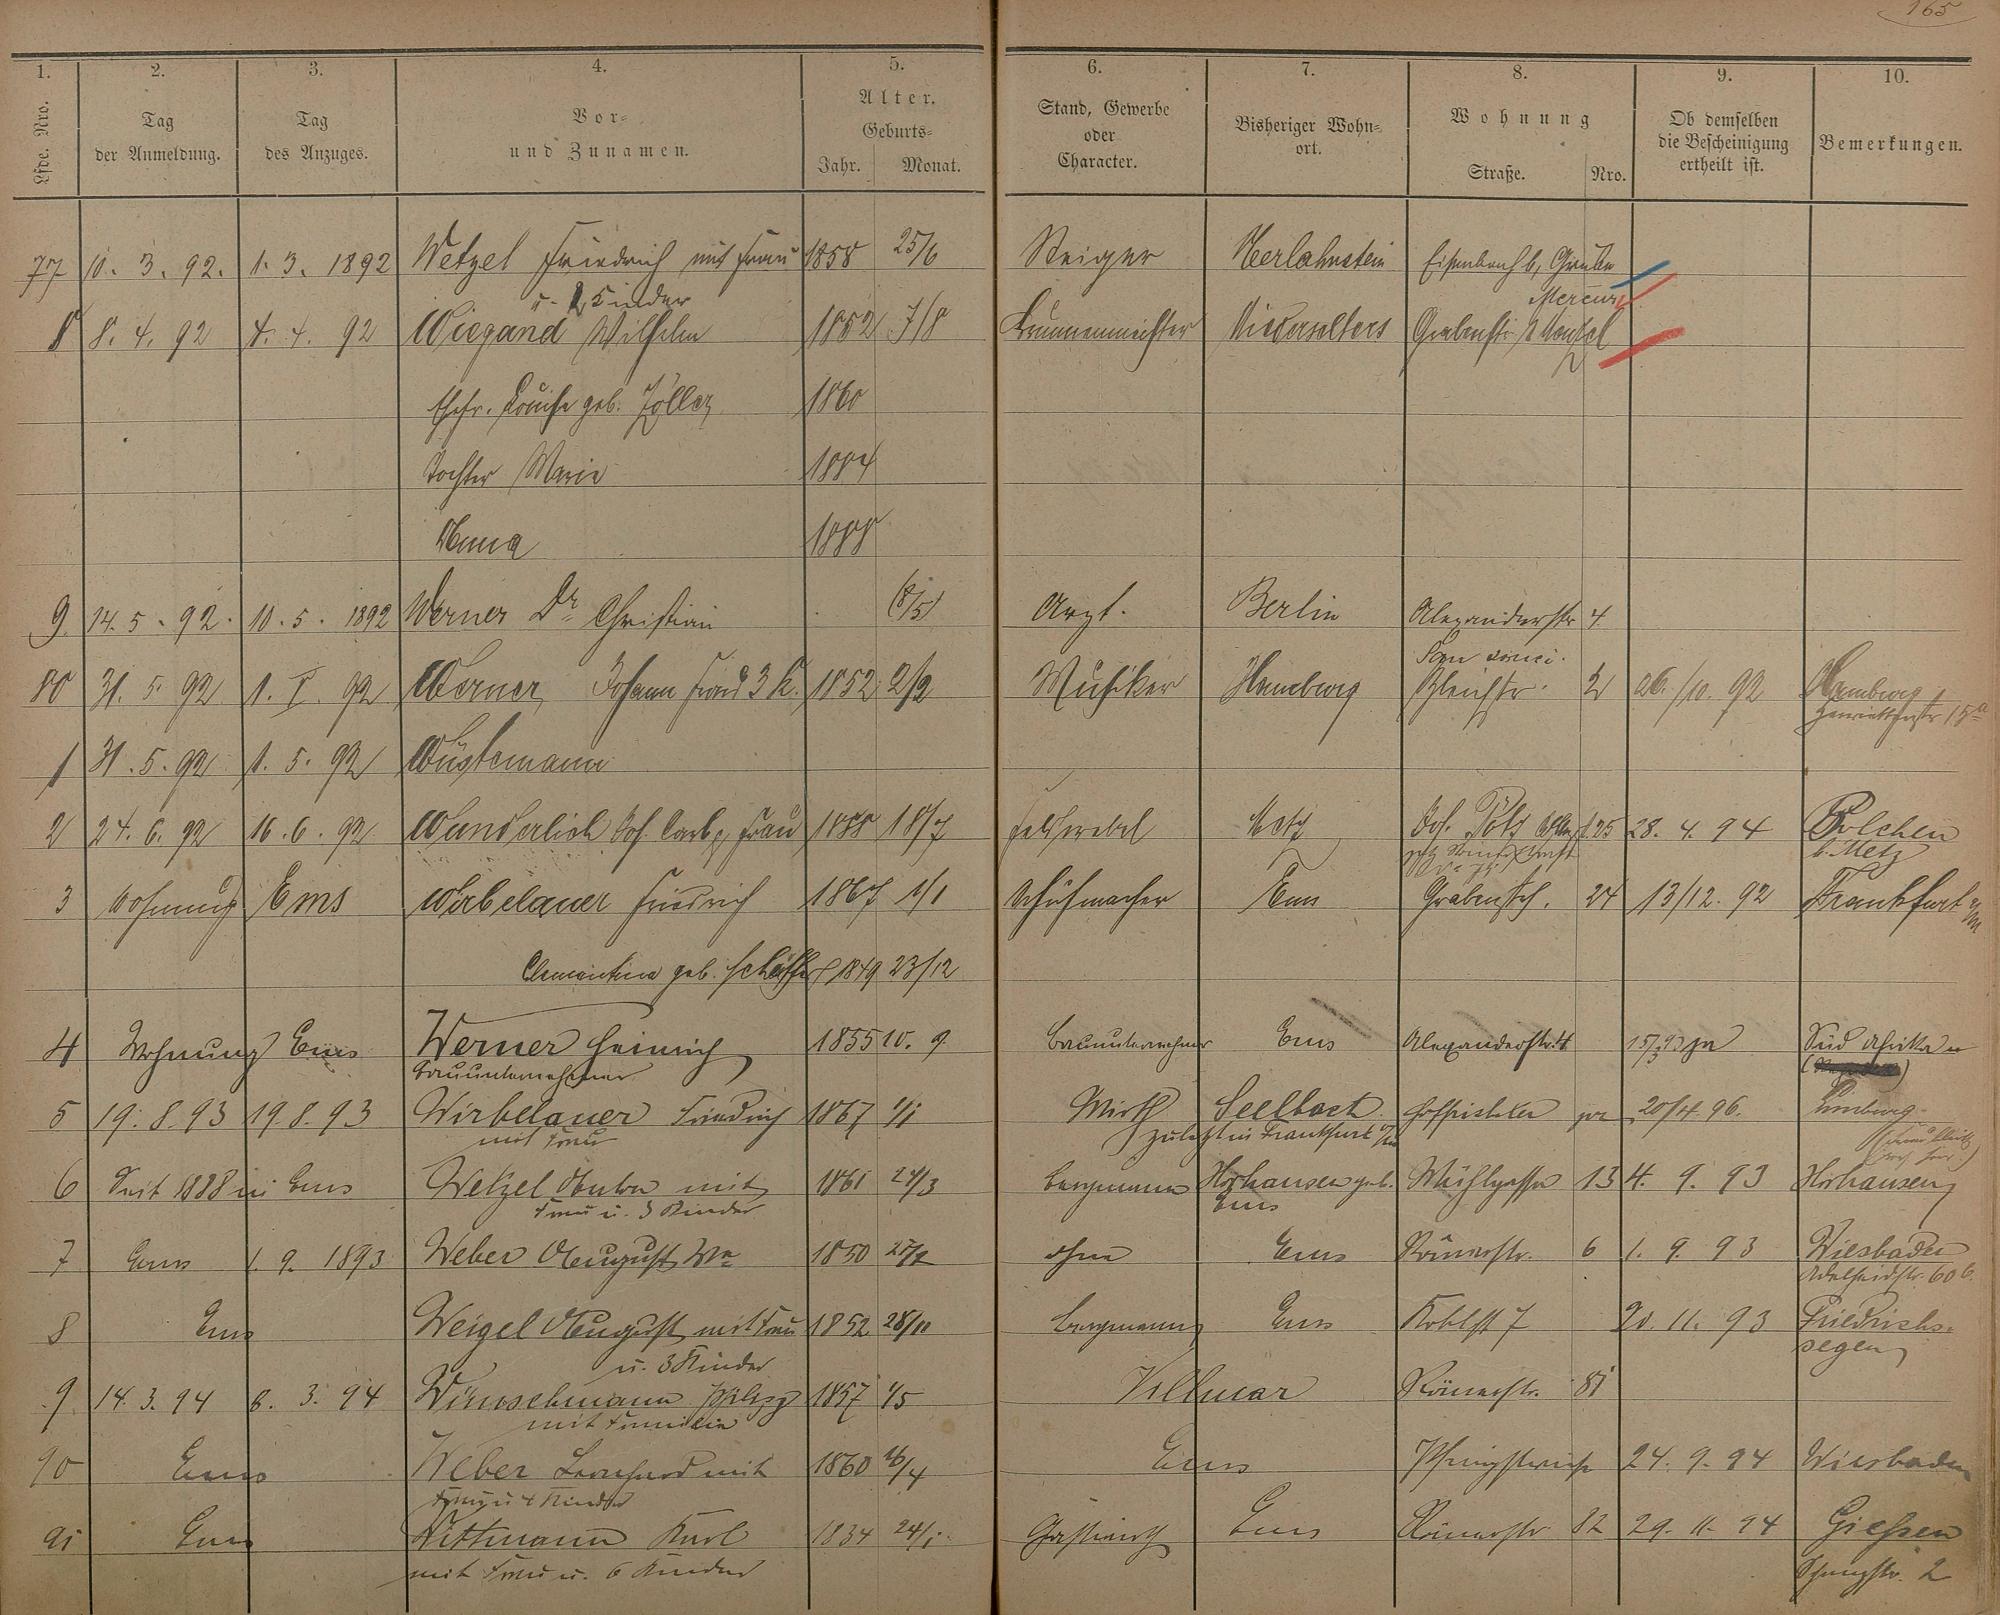 165
1. 2. 3. 4. 5. 6. 7. 8. 9. 10.
Lfde. Nro. Tag der Anmeldung. Tag des Anzuges. Vor- und Zunamen. Alter. Geburts- Jahr. Monat. Stand, Gewerbe oder Character. Bisheriger Wohn- ort. Wohnung Straße. Nro. Ob demselben die Bescheinigung ertheilt ist. Bemerkungen.
77 10. 3. 92. 1. 3. 1892 Wetzel Friedrich mit Frau 1858 25/6 Steiger Eisenbach b, Grube
u. 2 Kinder Mercur
8 8. 4. 92 4. 4. 92 Wiegand Wilhelm 1852 7/8 Brunnenmeister Niederselters Grabenstr.
Ehefr. Louise geb. Zöller 1860
Tochter Marie 1884
Anna 1888
9. 14. 5. 92. 10. 5. 1892 Werner Dr Christian (8/5) Arzt. Berlin Alexanderstr 4
Sans souci.
80 31. 5. 92 1. 5. 92 Werner, Johann Frau 3 K. 1852 2/2 Musiker Hamburg Bleichstr. 2 26./10. 92 Hamburg
15a
1 31. 5. 92 1. 5. 92 Wüstemann
2 24. 6. 92 16. 6. 92 Wunderlich Jos. Carl, Frau 1858 18/7 Feldwebel Metz Jos. 28. 4. 94 Bolchen
b. Metz
3 Wohnung Ems Wirbelauer Friedrich 1867 1/1 Schuhmacher Ems Grabenstr. 24 13/12. 92 Frankfurt a/M
Clementine geb. Schäffer 1849 23/12
4 Wohnung Ems Werner Heinrich 1855 10. 9. Bauunternehmer Ems Alexanderstr. 4 Süd Afrika
Bauunternehmer
5 19. 8. 93 19. 8. 93 Wirbelauer Friedrich 1867 1/1 Wirth Seelbach 20/4. 96. Limburg
mit Frau zuletzt in Frankfurt a/M
6 Seit 1888 in Ems Wetzel Anton mit 1861 Bergmann Horhausen geb. Mühlgasse 13 4. 9. 93 Horhausen
Frau u. 3 Kinder Ems
7 Ems 1. 9. 1893 Weber August We 1850 ohne Ems Römerstr. 6 1. 9. 93 Wiesbaden
Adelheidstr. 60 b.
8 Ems Weigel August mit Frau 1852 28/11 Bergmann Ems Koblst 7 20. 11. 93 Friedrichs-
u. 3 Kinder segen
9. 14. 3. 94 8. 3. 94 Philipp 1857 1/5 Villmar Römerstr. 81
mit Familie
90 Ems Weber Leonhard mit 1860 16/4 Ems Pfingstwiese 24. 9. 94 Wiesbaden
Frau u 4 Kinder
91 Ems Wittmann Karl 1834 24/1. Gastwirth Ems Römerstr 82 29. 11. 94 Giessen
mit Frau u. 6 Kinder 2